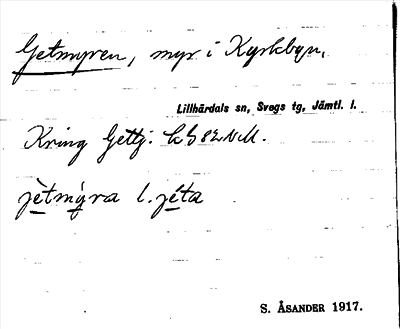 Getmyren, myr i Kyrkbyn.
Lillhärdals sn, Svegs tg, Jämtl. l.
Kring Gettj.
jètmy̆ra l. jéta
S. ÅSANDER 1917.